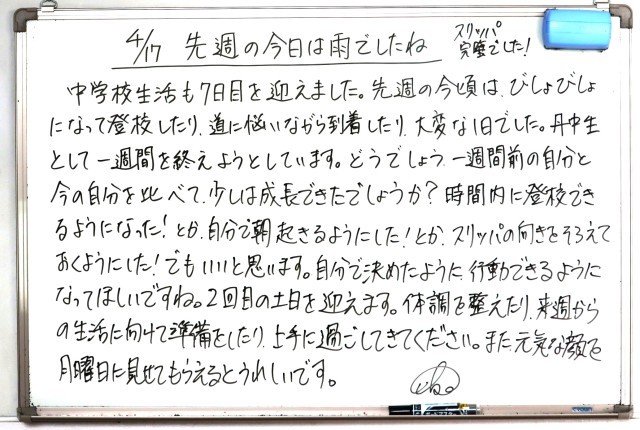 4/17 先週の今日は雨でしたね
スリッパ
完璧でした!
中学校生活も7日目を迎えました。先週の今頃は、びしょびしょ
になって登校したり、道に悩いながら到着したり、大変な1日でした。丹中生
として一週間を終えようとしています。どうでしょう、一週間前の自分と
今の自分を比べて、少しは成長できたでしょうか?時間内に登校でき
るようになった!とか、自分で朝起きるようにした!とか、スリッパの向きをそろえて
おくようにした!でもいいと思います。自分で決めたように、行動できるように
なってほしいですね。2回目の土日を迎えます。体調を整えたり、来週から
の生活に向けて準備をしたり、上手に過ごしてきてください。また元気な顔を
月曜日に見せてもらえるとうれしいです。